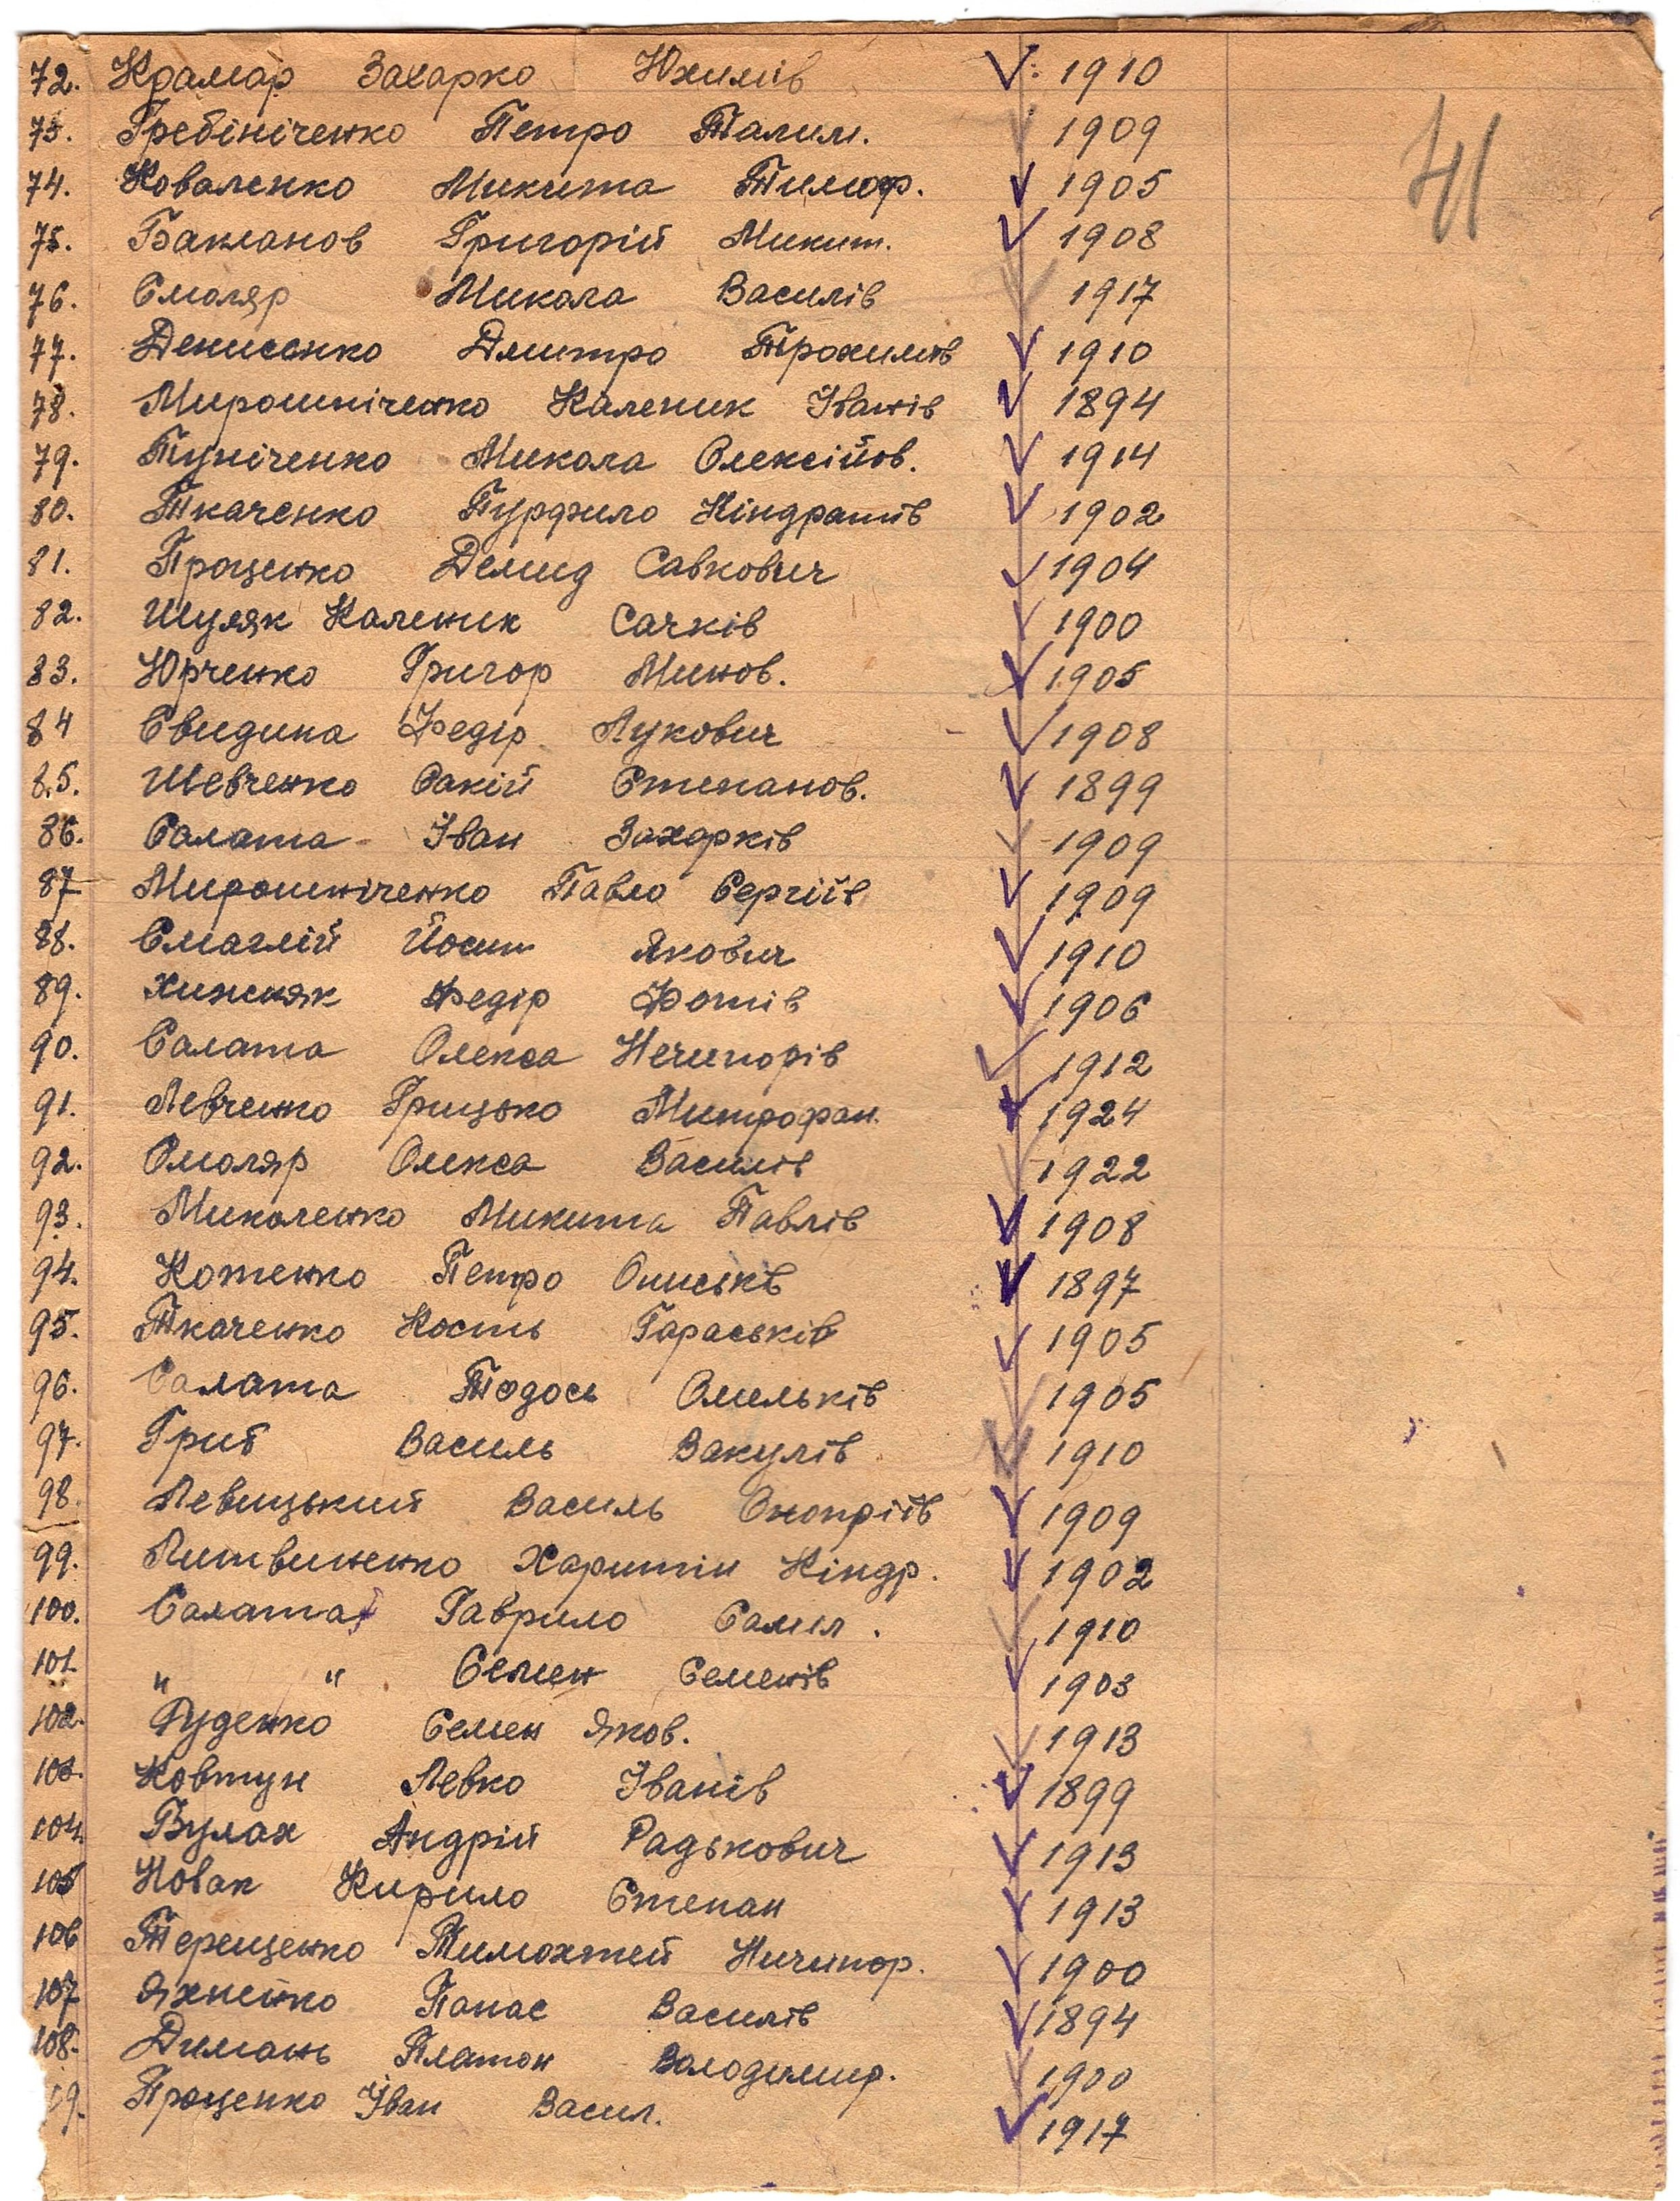 41
72. Крамар Захарко Юхимів 1910
73. Гребініченко Петро Талим. 1909
74. Коваленко Микита Тимоф. 1905
75. Бакланов Григорій Микит. 1908
76. Смоляр Микола Василів 1917
77. Денисенко Дмитро Трохимів 1910
78. Мирошніченко Каленик Іванів 1894
79. Микола Олексійов. 1914
80. Ткаченко Пурфило Кіндратів 1902
81. Проценко Демид Савкович 1904
82. Шуляк Каленик Сачків 1900
83. Юрченко Григор Минов. 1905
84 Свидина Федір Лукович 1908
85. Шевченко Сакій Степанов. 1899
86. Салата Іван Захарків 1909
87 Мирошніченко Павло Сергіїв 1909
88. Смаглій Йосип Якович 1910
89. Хижняк Федір Фотів 1906
90. Салата Олекса Нечипорів 1912
91. Левченко Грицько Митрофан. 1924
92. Смоляр Олекса Василів 1922
93. Миколенко Микита Павлів 1908
94. Котенко Петро Описьків 1897
95. Ткаченко Кость Гараськів 1905
96. Салата Тодось Омельків 1905
97. Гриб Василь Вакулів 1910
98. Левицький Василь Онопріїв 1909
99. Литвиненко Харитін Кіндр. 1902
100. Салата Гаврило Самил. 1910
101. " " Семен Семенів 1903
102. Руденко Семен Яков. 1913
103. Ковтун Левко Іванів 1899
104. Вулах Андрій Радькович 1913
105 Новак Кирило Степан 1913
106 Терещенко Тимохтей Ничипор. 1900
107 Яхненко Панас Василів 1894
108. Димань Платон Володимир. 1900
09. Проценко Іван Васил. 1917